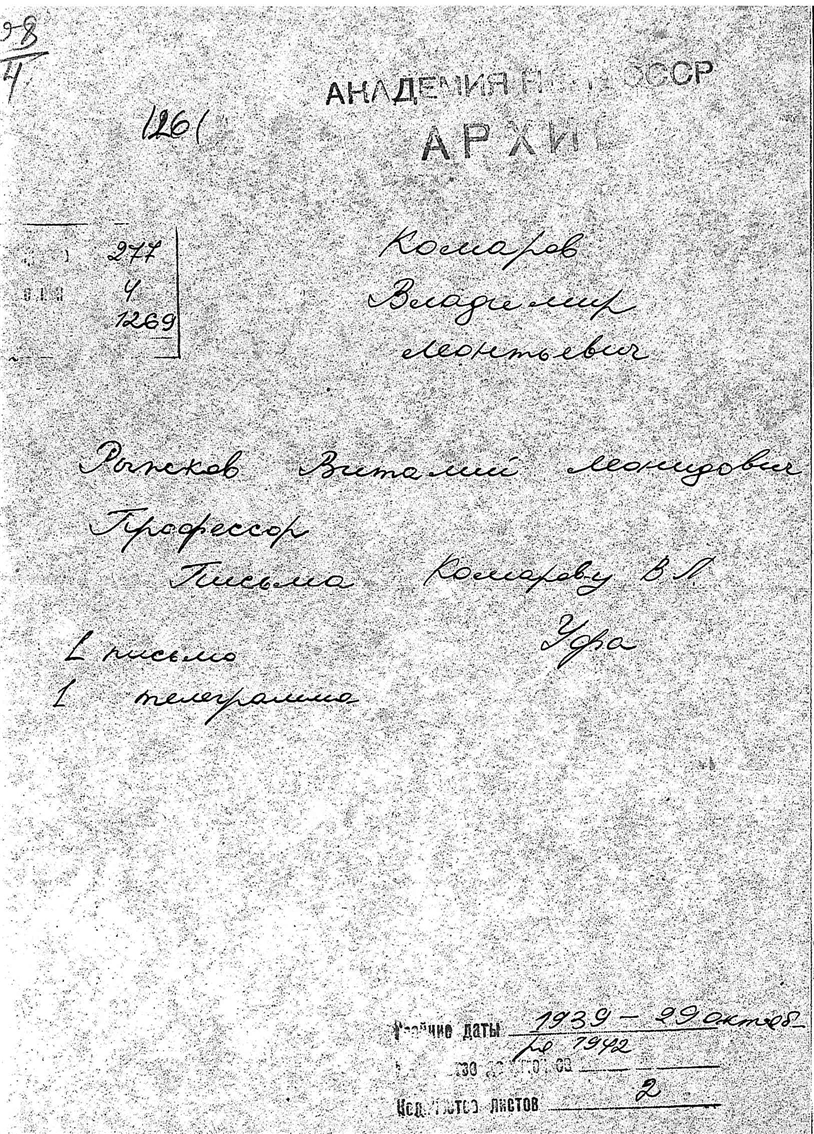 98
4
АКАДЕМИЯ НАУК СССР
АРХИВ
1261
277
4
1269
Комаров
Владимир
Леонтьевич
Рыжков Виталий Леонидович
Профессор
Письма Комарову В Л
Уфа
1 письмо
1 телеграмма
Крайние даты 1939 – 29 октяб-
ря 1942
Количество листов 2